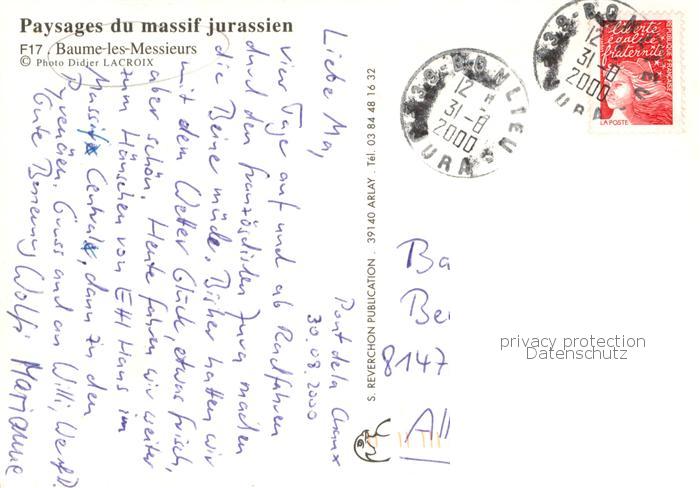 Paysages du massif jurassien
F17. Baume-les-Messieurs
© Photo Didjer LACROIX
Pont de la
30.08.2000
Liebe Ma,
vier Tage auf und ab Radfahren
durch den französischen Jura machen
die Beine müde. Bisher hatten wir
mit dem Wetter Glück, etwas frisch,
aber schön. Heute fahren wir weiter
zum Häuschen von EHI Haus im
Massif Central, dann zu den
Pyrenäen. Gruss and an Willi,
Gute Besserung Wolfi Marianne
S. REVERCHON PUBLICATION . 39140 ARLAY . Tél. 03 84 48 16 32
39-BONLIEU
12 H
31-8
2000
JURA
39-BONLIEU
12 H
31-8
2000
JURA
liberté
égalité
fraternité
RÉPUBLIQUE FRANÇAISE
LA POSTE
Ba
Be
8147
All
privacy protection
Datenschutz